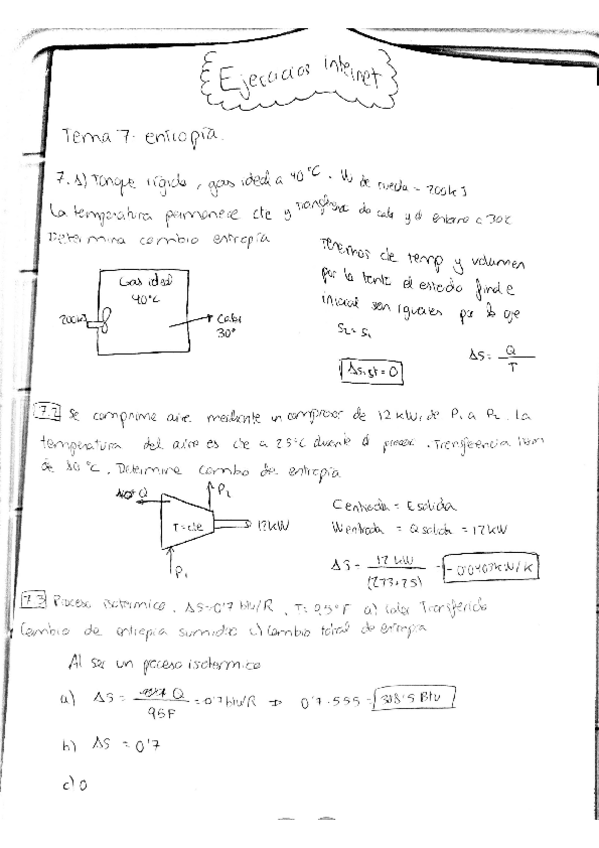 Ejercicios internet
Tema 7. entropía.
7.1) Tanque rígido, gas ideal a 40°C. W de rueda = 200kJ
La temperatura permanece cte y transferencia de calor y el entorno a 30°C
Determina cambio entropía
Gas ideal
40°C
200kJ
Calor
30°
Tenemos cte temp y volumen
por lo tanto el estado final e
inicial son iguales por lo que
S₂ = S₁
ΔSsist = 0
ΔS = Q/T
7.2 Se comprime aire mediante un compresor de 12 kW, de P₁ a P₂. La
temperatura del aire es cte a 25°C durante el proceso. Transferencia
de 10°C. Determine cambio de entropía
Q
P₂
T = cte
12 kW
P₁
Eentrada = Esalida
Wentrada = Qsalida = 12 kW
ΔS = 12 kW/(273+25) = -0'0403 kW/K
7.3 Proceso isotérmico. ΔS=0'7 btu/R, T= 95°F a) Calor Transferido
Cambio de entropía sumidero c) Cambio total de entropía
Al ser un proceso isotermico
a) ΔS = Q/95F = 0'7 btu/R → 0'7·555 = 388'5 Btu
b) ΔS = 0'7
c) 0